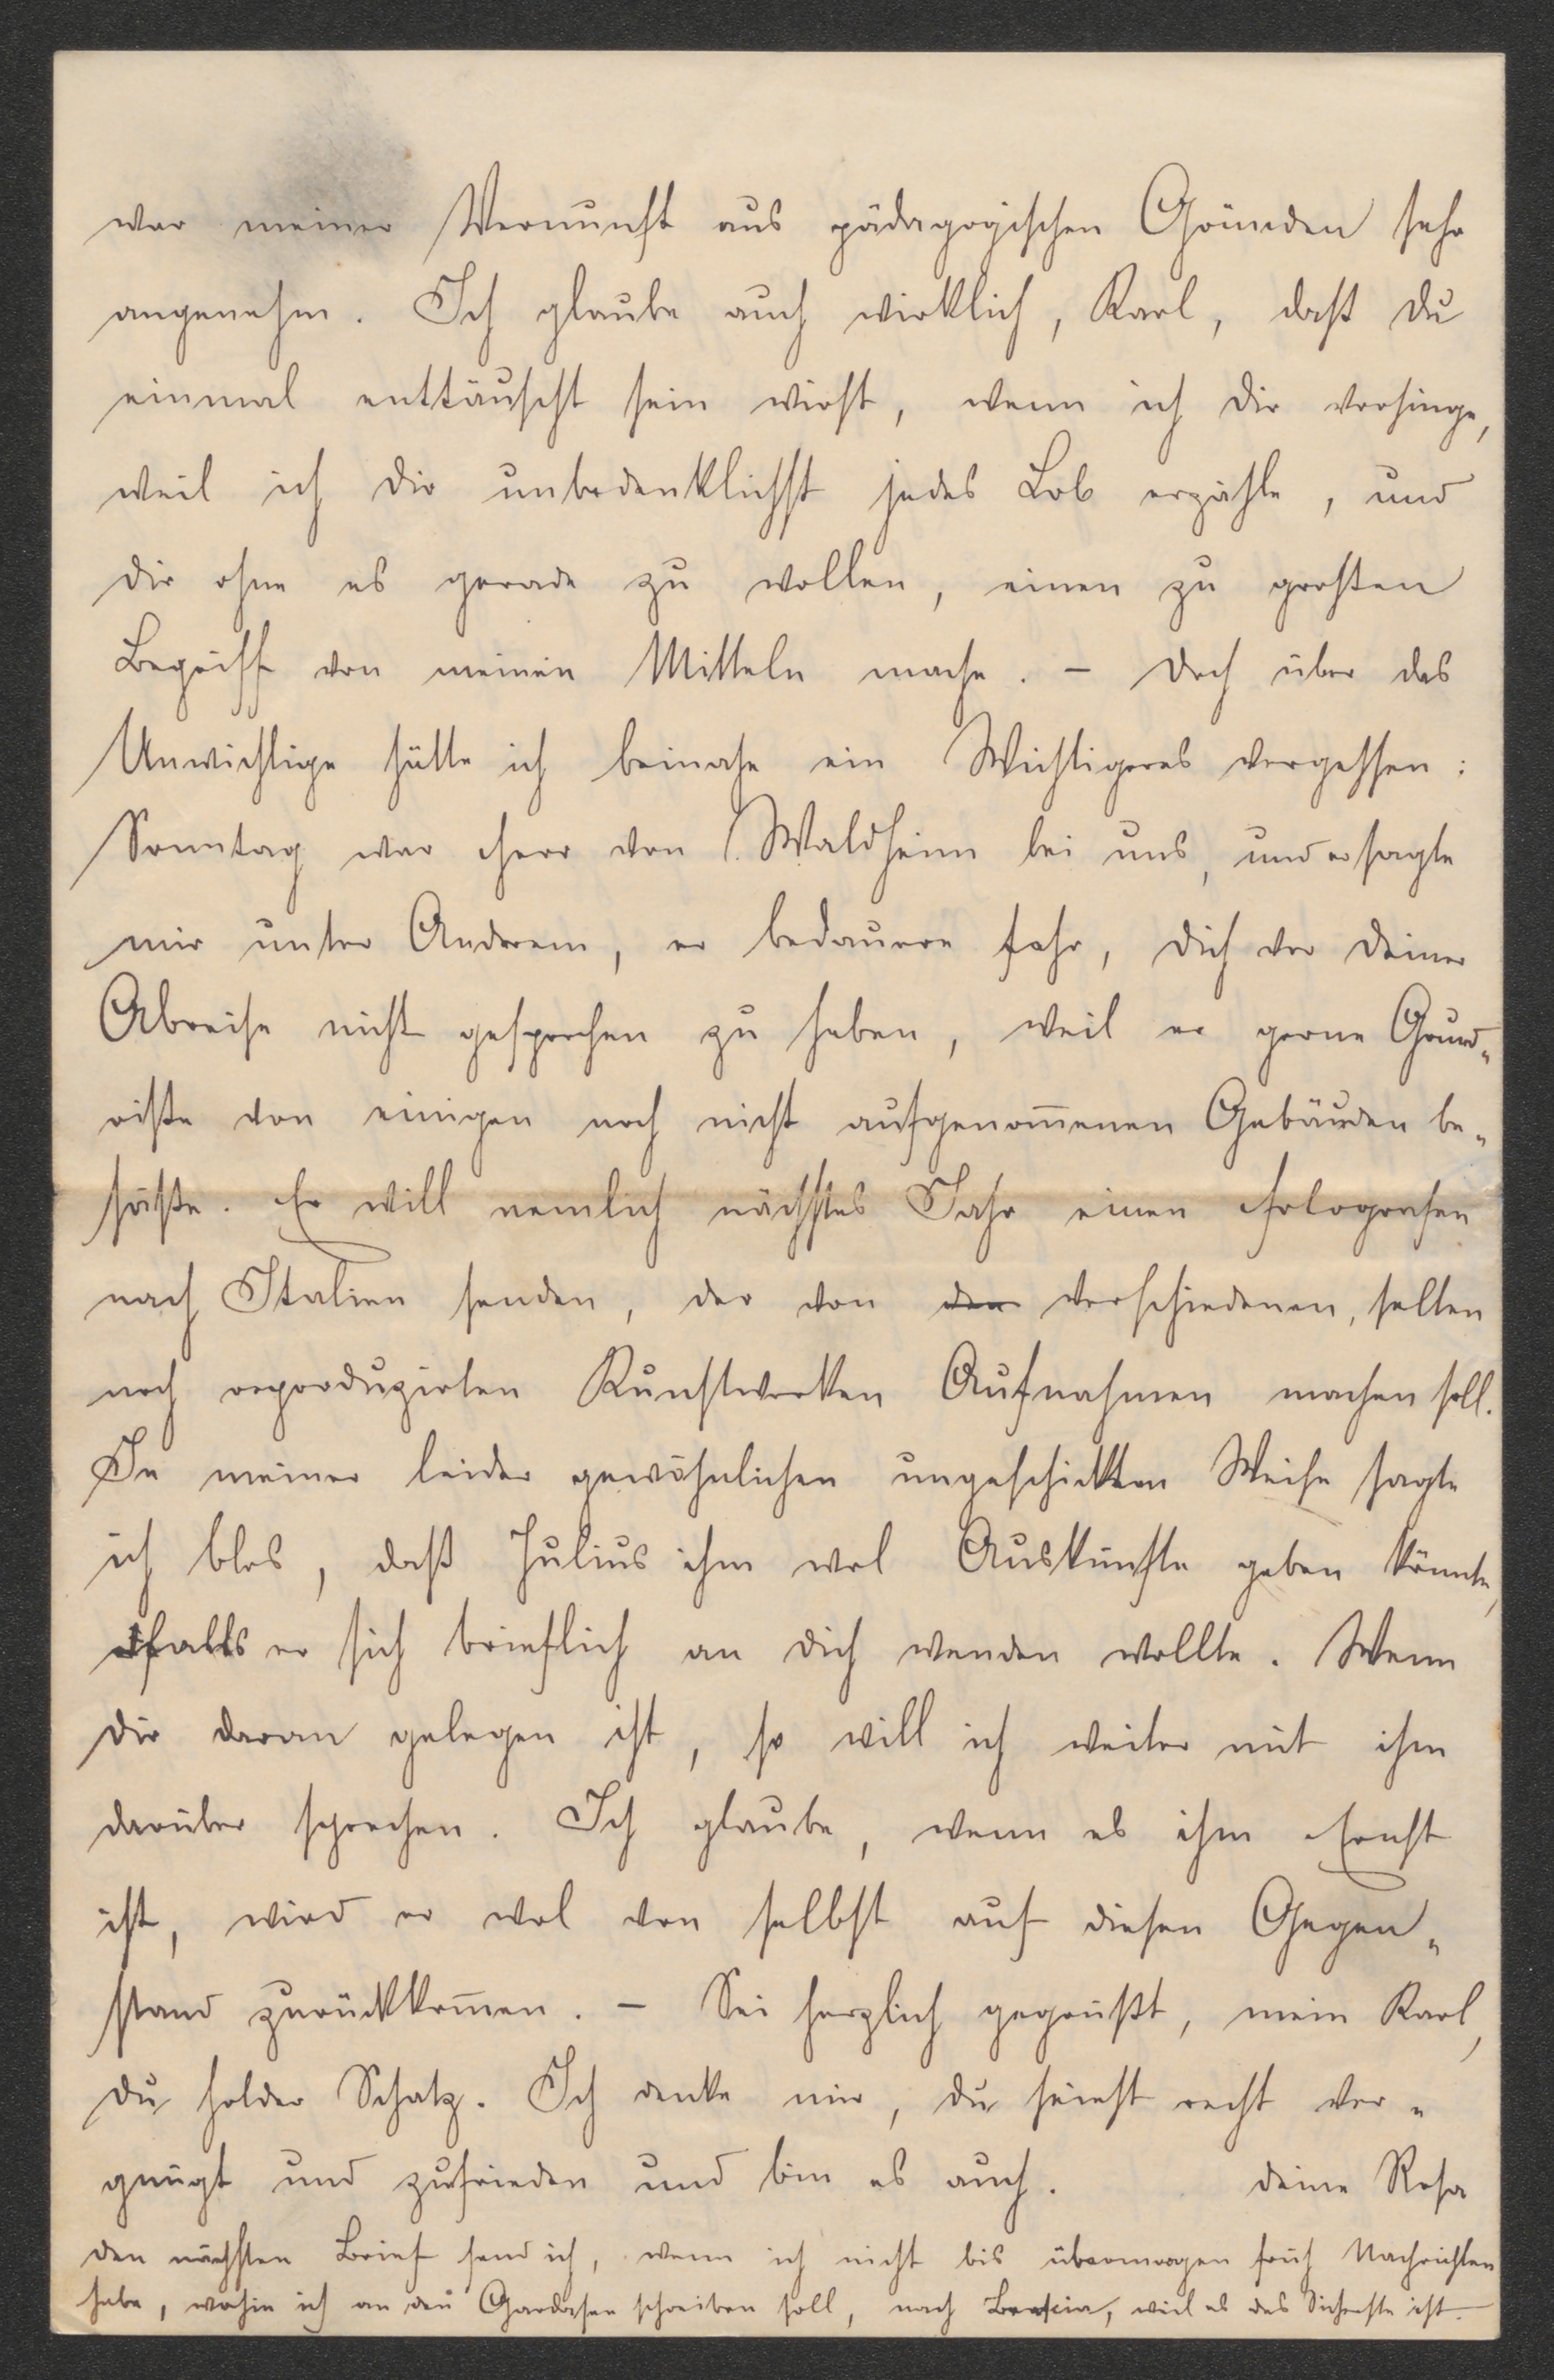 war meiner Vernunft aus pädagogischen Gründen sehr
angenehm. Ich glaube auch wirklich, Karl, daß du
einmal enttäuscht sein wirst, wenn ich dir vorsinge,
weil ich dir unbedenklichst jedes Lob erzähle, und
dir ohne es gerade zu wollen, einen zu großen
Begriff von meinen Mitteln mache. – Doch über das
Unwichtige hätte ich beinahe ein Wichtigeres vergessen:
Sonntag war Herr von Waldheim bei uns, und er sagte
mir unter Anderem, er bedauere sehr, dich vor deiner
Abreise nicht gesprochen zu haben, weil er gerne Grund„
riße von einigen noch nicht aufgenom̅enen Gebäuden be„
säße. Er will nemlich nächstes Jahr einen Fotografen
nach Italien senden, der von den verschiedenen, selten
noch reproduzirten Kunstwerken Aufnahmen machen soll.
In meiner leider gewöhnlichen ungeschickten Weise sagte
ich blos, daß Julius ihm wol Auskünfte geben könnte,
falls er sich brieflich an dich wenden wollte. Wenn
dir daran gelegen ist, so will ich weiter mit ihm
darüber sprechen. Ich glaube, wenn es ihm Ernst
ist, wird er wol von selbst auf diesen Gegen„
stand zurückkom̅en. – Sei herzlich gegrüßt, mein Karl,
du holder Schatz. Ich denke mir, du seiest recht ver„
gnügt und zufrieden und bin es auch. deine Rosa
den nächsten Brief send ich, wenn ich nicht bis übermorgen früh Nachrichten
habe, wohin ich an den Gardasee schreiben soll, nach Brescia, weil es das Sicherste ist.